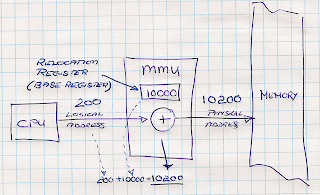 RELOCATION
REGISTER
(BASE REGISTER)
MMU
10000
200
10200
CPU
LOGICAL
ADDRESS
+
PHYSICAL
ADDRESS
MEMORY
200+10000=10200